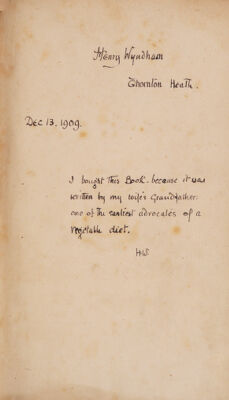 Henry Wyndham
Thornton Heath.
Dec 13, 1909.
I bought this Book - because it was
written by my wife's Grandfather:
one of the earliest advocates of a
vegetable diet.
HW